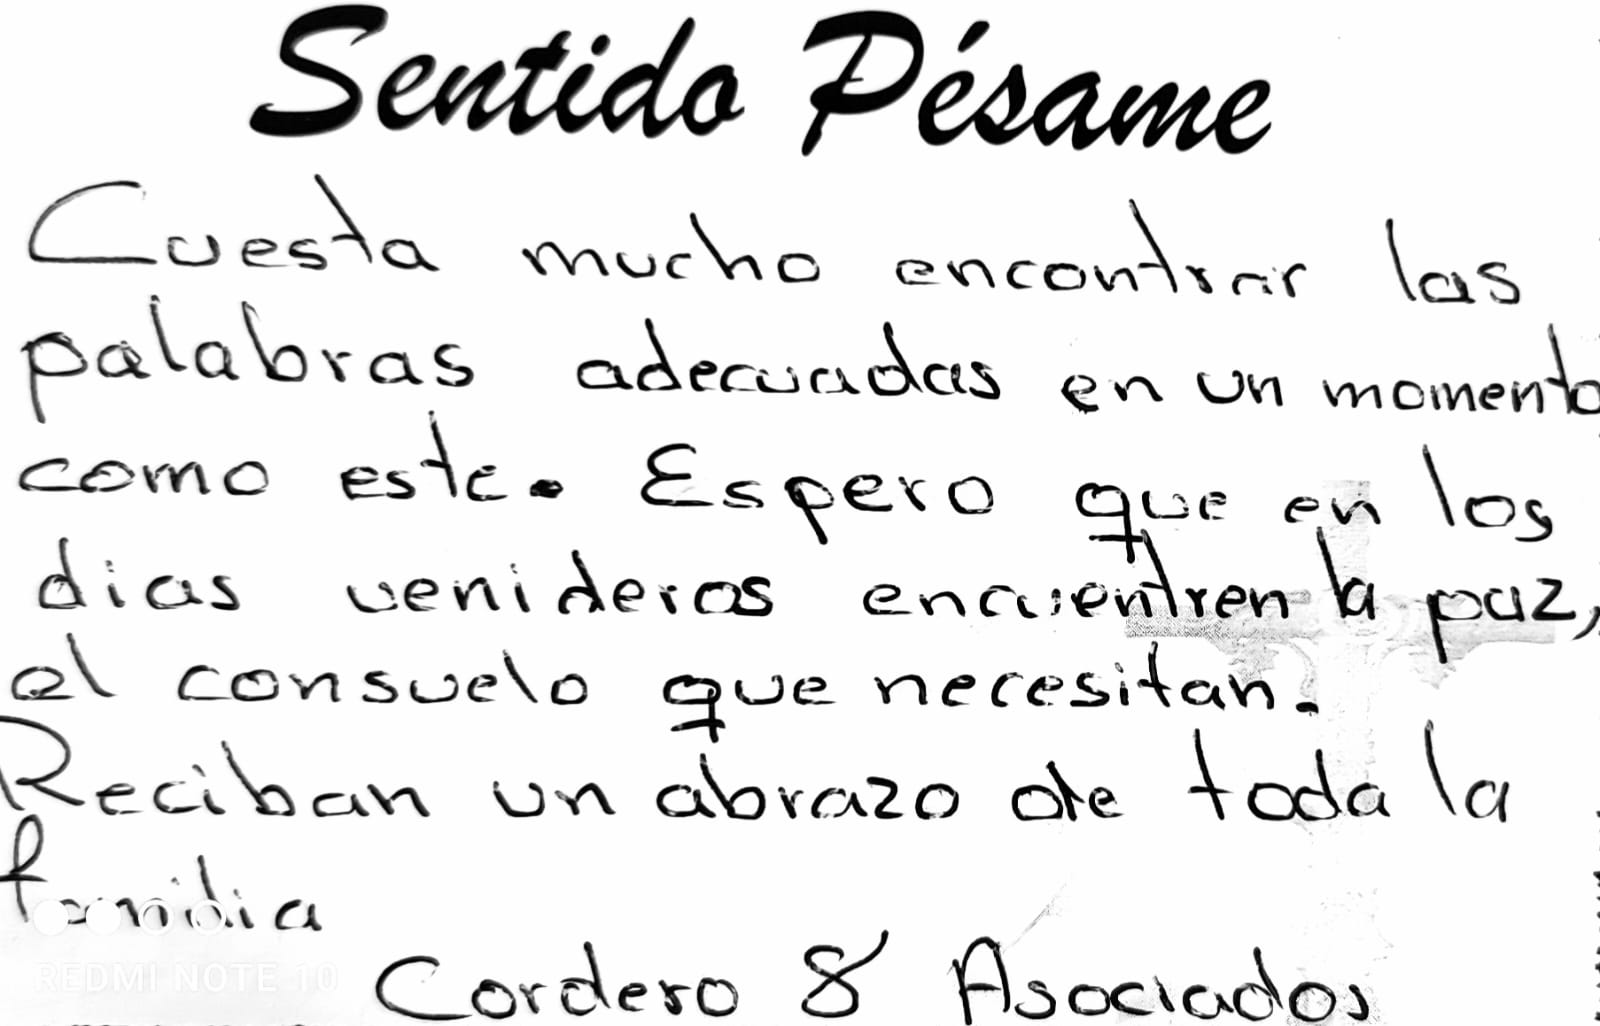 Sentido Pésame
Cuesta mucho encontrar las
palabras adecuadas en un momento
como este. Espero que en los
dias venideros encuentren la paz,
el consuelo que necesitan.
Reciban un abrazo de toda la
familia
REDMI NOTE 10
Cordero & Asociados